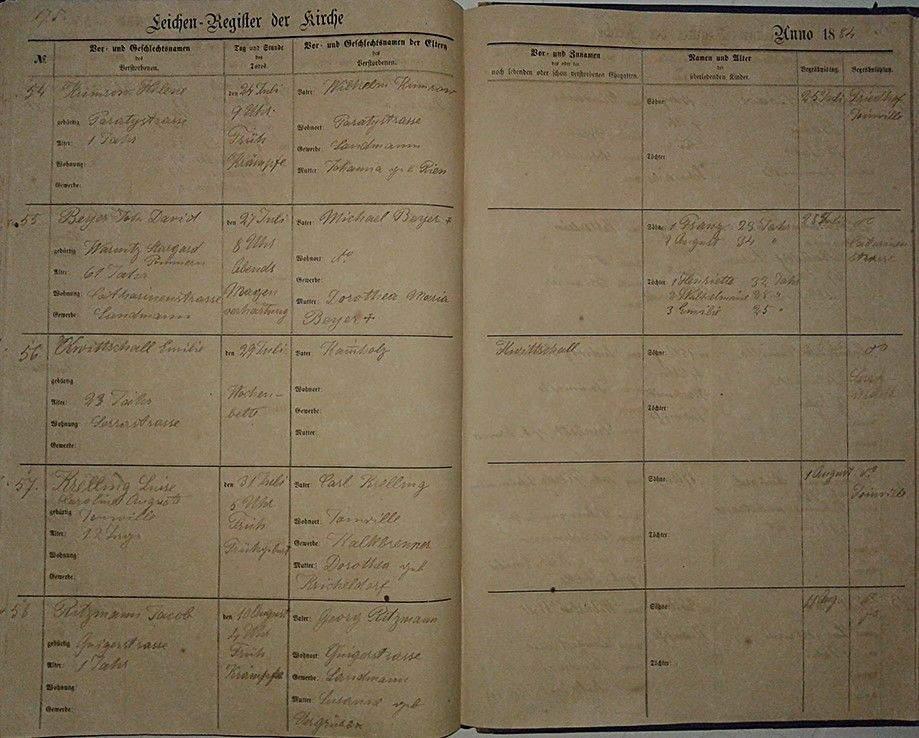 Leichen-Register der Kirche
Anno 1884
№
Vor- und Geschlechtsnamen
des
Verstorbenen.
Tag und Stunde
des
Todes.
Vor- und Geschlechtsnamen der Eltern
des
Verstorbenen.
Vor- und Zunamen
des oder der
noch lebenden oder schon verstorbenen Ehegatten.
Namen und Alter
der
überlebenden Kinder.
Begräbnißtag.
Begräbnißplatz.
54
Helene
gebürtig Paratystrasse
Alter: 1 Jahr
Wohnung:
Gewerbe:
den 24 Juli
9 Uhr
Früh
Krämpfe
Vater: Wilhelm
Wohnort: Paratystrasse
Gewerbe Landmann
Mutter Johanna geb
Söhne:
Töchter:
25 Juli
Friedhof
Joinville
55
Beyer Joh. David
gebürtig
Pommern
Alter: 61 Jahr
Wohnung: Catharinenstrasse
Gewerbe: Landmann
den 27 Juli
8 Uhr
Abends
Magen
verhärtung
Vater: Michael Beyer +
Wohnort: do
Gewerbe:
Mutter: Dorothea Maria
Beyer +
Söhne: 1 Franz 28 Jahr
2 August 34 "
Töchter: 1 Henriette 32 Jahr
2 Wilhelmine 28 "
3 Emilie 25 "
28 Juli
do
Catharinen
strasse
56
Kwittschall Emilie
gebürtig
Alter: 23 Jahr
Wohnung
Gewerbe:
den 29 Juli
Wochen-
bette
Vater
Wohnort:
Gewerbe:
Mutter:
Kwittschall
Söhne:
Töchter:
do
57.
Krelling Luise
Caroline Auguste
gebürtig Joinville
Alter: 12 Tage
Wohnung:
Gewerbe:
den 31 Juli
5 Uhr
Früh
Frühgeburt
Vater Carl Krelling
Wohnort: Joinville
Gewerbe: Kalkbrenner
Mutter: Dorothea geb
Kricheldorf
Söhne.
Töchter:
1 August
do
Joinville
58
Ritzmann Jacob
gebürtig
Alter: 1 Jahr
Wohnung:
Gewerbe:
den 10 August
Uhr
Früh
Krämpfe
Vater: Georg Ritzmann
Wohnort:
Gewerbe: Landmann
Mutter Susanna geb
Söhne:
Töchter:
11 Aug.
do